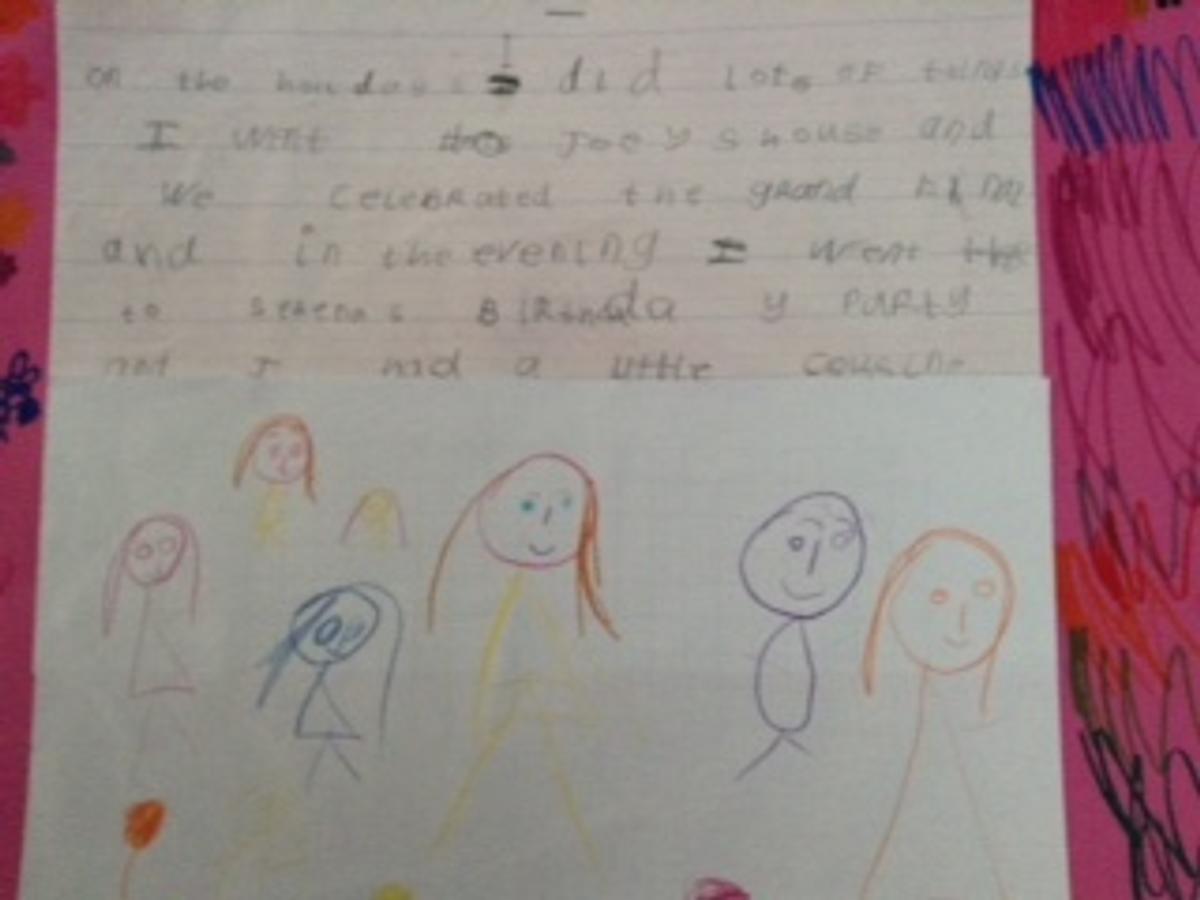 on the holidays I did lots of things
I went to Joey s house and
We celebrated the grand
and in the evening I went
to serena s Birthda y party
not I had a little